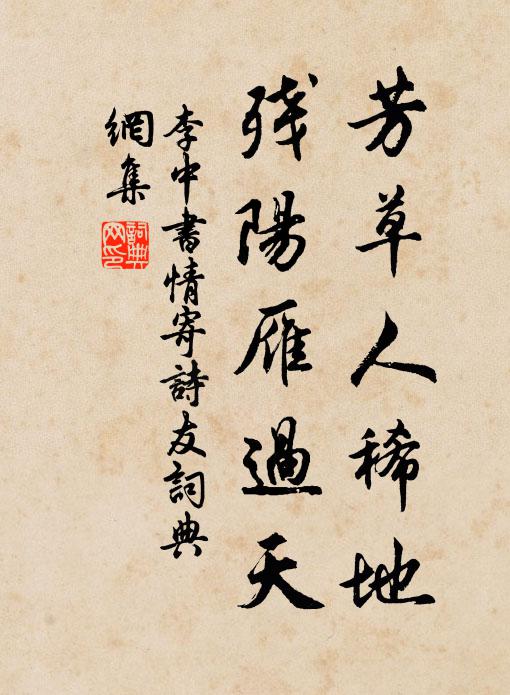 芳草人稀地
残陽雁過天
李中書情寄詩友詞典
網集
詞典
网印